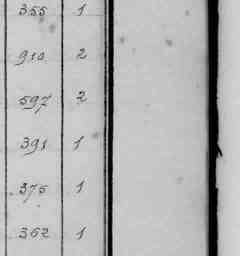 355 1
910 2
597 2
391 1
375 1
362 1